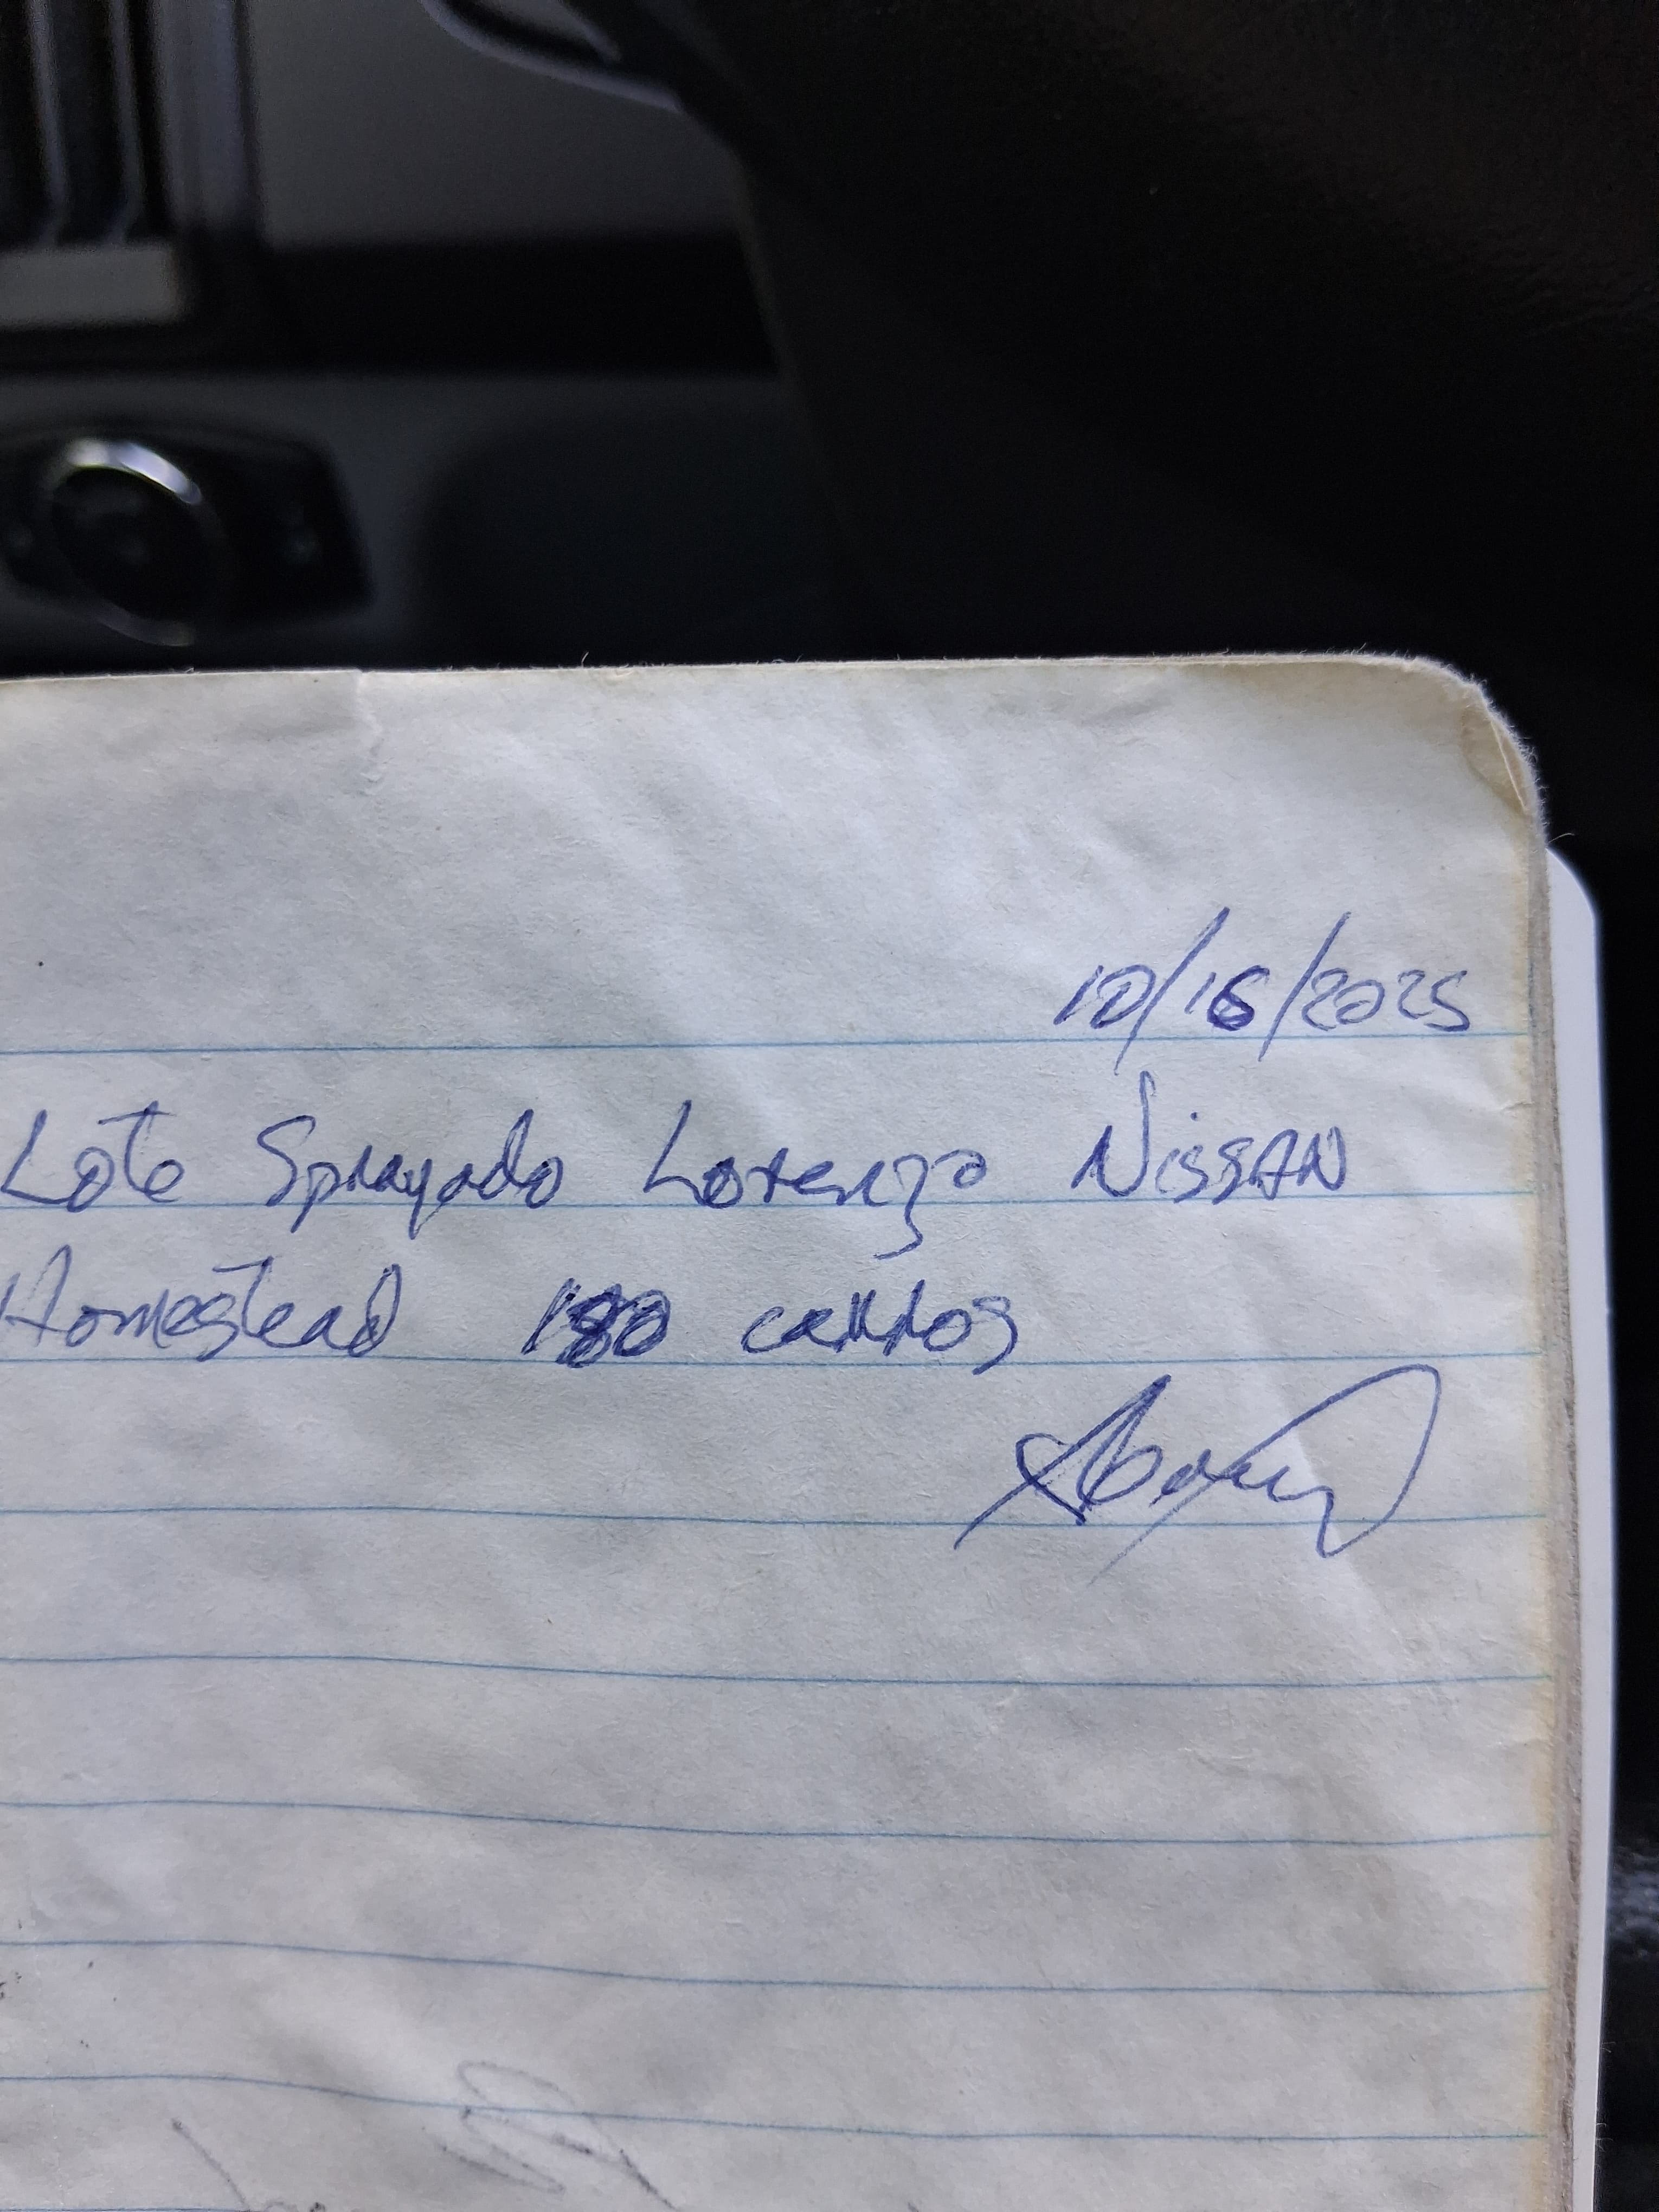 10/16/2025
Lote Sprayado Lorenzo Nissan
Homestead 180 carros